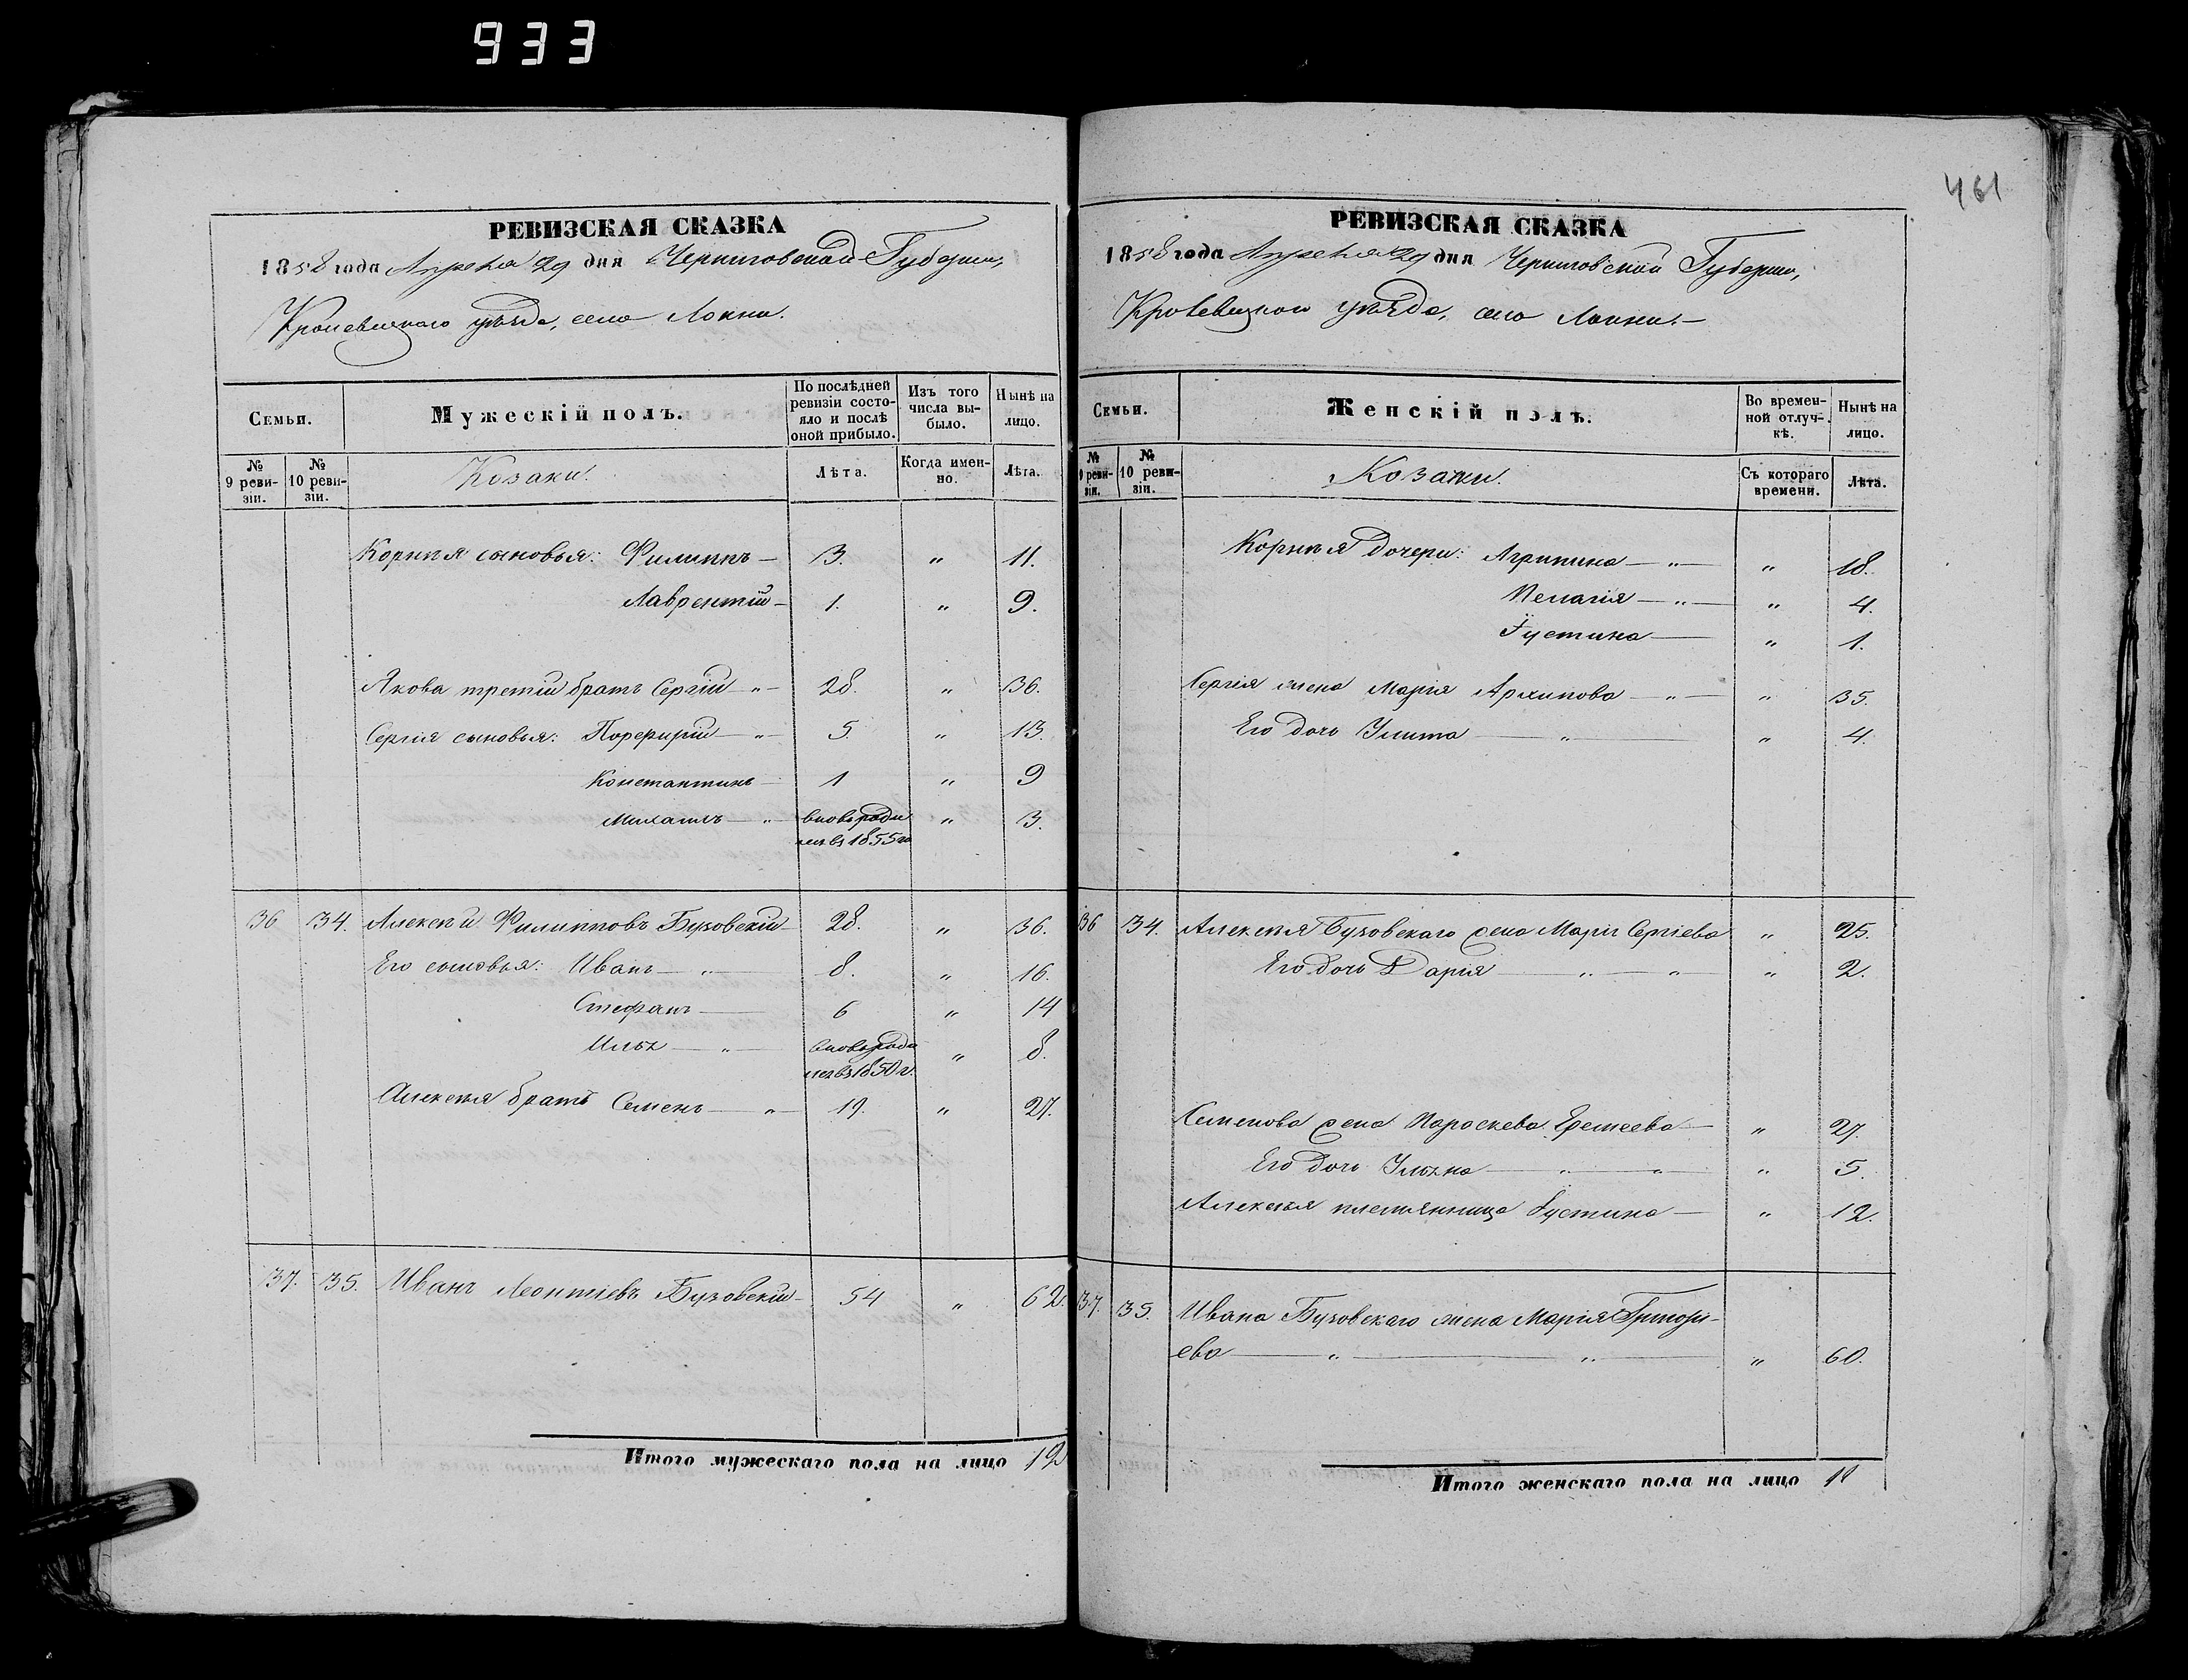 933
461
РЕВИЗСКАЯ СКАЗКА
1858 года Апреля 29 дня Черниговской Губернии,
Кролевецкого уѣзда, село Локни.
Семьи.
Мужескій полъ.
По послѣдней ревизіи состояло и послѣ оной прибыло.
Изъ того числа выбыло.
Нынѣ на лицо.
№ 9 ревизіи.
№ 10 ревизіи.
Козаки.
Лѣта.
Когда именно.
Лѣта.
Корнѣя сыновья: Филиппъ — 3. " 11.
Лаврентій — 1. " 9.
Якова третий братъ Сергій — " — 28. " 36.
Сергія сыновья: Порфирий — " — 5. " 13.
Константинъ — 1 " 9
Михаилъ — " — вновь роди " 3.
лся въ 1855 го
36 34. Алексѣй Филипповъ Бузовскій — 28. " 36.
Его сыновья: Иванъ — " 8. " 16.
Стефанъ — 6 " 14
Илья — " — вновь роди " 8.
лся въ 1850 г.
Алексѣя братъ Семенъ — " — 19. " 27.
37. 35. Иванъ Леонтіевъ Бузовскій — 54 " 62.
Итого мужескаго пола на лицо 12
РЕВИЗСКАЯ СКАЗКА
1858 года Апреля 29 дня Черниговской Губернии,
Кролевецкого уѣзда, село Локни. —
Семьи.
Женскій полъ.
Во временной отлучкѣ.
Нынѣ на лицо.
№ 9 ревизіи.
№ 10 ревизіи.
Козаки.
Съ котораго времени.
Лѣта.
Корнѣя дочери: Агрипина — " — " 18.
Пелагія — " — " 4.
Іустина — " 1.
Сергія жена Марія Архипова — " — " 35.
Его дочь Улита — " — " 4.
36 34. Алексѣя Бузовскаго жена Марія Сергіева " 25.
Его дочь Дарія — " — " " 2.
Семенова жена Параскева Еремеева — " 27.
Его дочь Ульяна — " — " " 5.
Алексѣя племянница Іустина — " 12.
37. 35. Ивана Бузовскаго жена Марія Григорі-
ева — " — " — " 60.
Итого женскаго пола на лицо 11